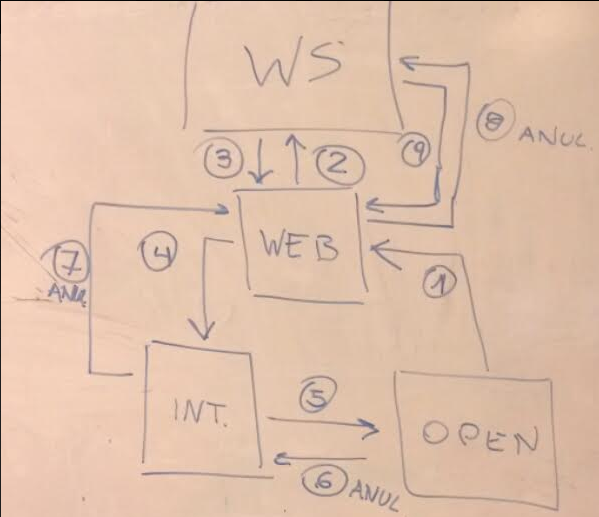 WS
8 ANUL.
3
2
9
WEB
7
ANUL
4
1
INT.
5
OPEN
6 ANUL